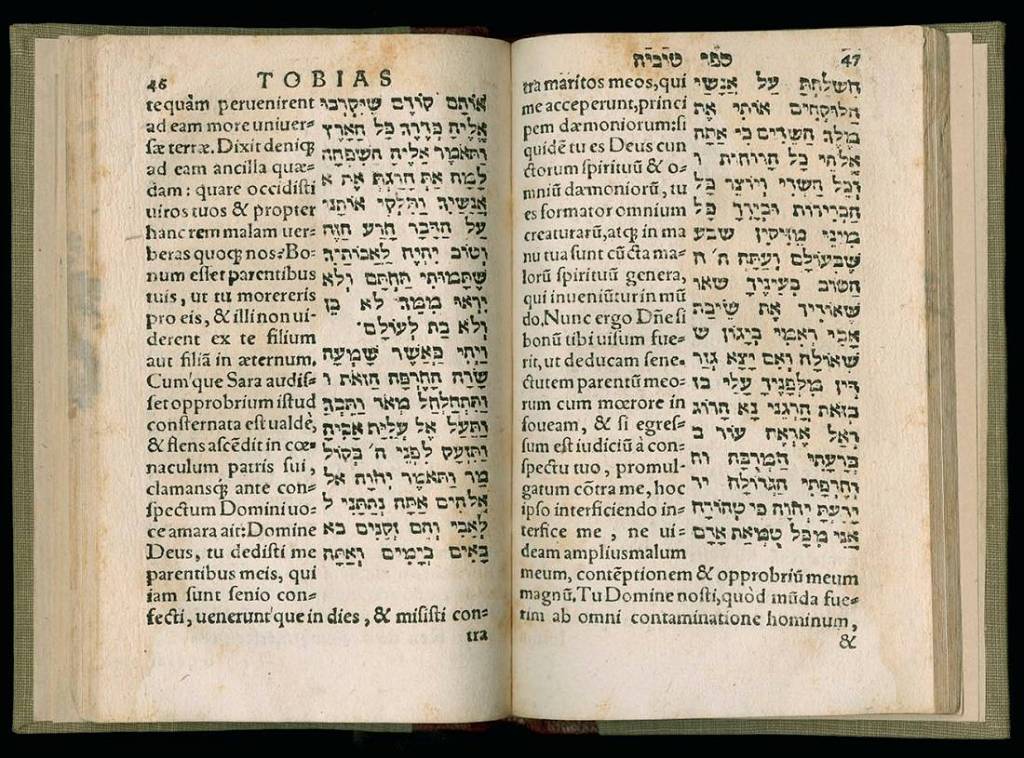 46 TOBIAS
tequàm peruenirent
ad eam more uniuer-
sæ terræ. Dixit deniqꝫ
ad eam ancilla quæ-
dam: quare occidisti
uiros tuos & propter
hanc rem malam uer-
beras quoqꝫ nos? Bo-
num esset parentibus
tuis, ut tu morereris
pro eis, & illi non ui-
derent ex te filium
aut filiā in æternum.
Cum'que Sara audis-
set opprobrium istud
consternata est ualdè,
& flens ascēdit in cœ-
naculum patris sui,
clamansqꝫ ante con-
spectum Domini uo-
ce amara ait: Domine
Deus, tu dedisti me
parentibus meis, qui
iam sunt senio con-
fecti, uenerunt'que in dies, & misisti con-
tra
אותם קודם שיקרבו
אליה כדרך כל הארץ
ותאמר אליה השפחה
למה את הורגת את א
אנשיך ותלקי אותנו
על הדבר הרע הזה
וטוב יהיה לאבותיך
שתמותי תחתם ולא
יראו ממך לא בן
ולא בת לעולם׃
ויהי כאשר שמעה
שרה החרפה הזאת ו
ותתחלחל מאד ותבך
ותעל אל עליית אביה
ותזעק לפני ה׳ בקול
מר ותאמר יהוה אל
אלהים אתה נתתני ל
לאבי והם זקנים בא
באים בימים ואתה
ספר טוביה 47
tra maritos meos, qui
me acceperunt, princi
pem dæmoniorum: si
quidē tu es Deus cun
ctorum spirituū & o-
mniū dæmoniorū, tu
es formator omnium
creaturarū, atqꝫ in ma
nu tua sunt cūcta ma-
lorū spirituū genera,
qui inueniūtur in mū
do. Nunc ergo Dñe si
bonū tibi uisum fue-
rit, ut deducam sene-
ctutem parentū meo-
rum cum mœrore in
foueam, & si egres-
sum est iudiciū à con-
spectu tuo, promul-
gatum cōtra me, hoc
ipso interficiendo in-
terfice me, ne ui-
deam ampliusmalum
meum, contēptionem & opprobriū meum
magnū. Tu Domine nosti, quòd mūda fue-
rim ab omni contaminatione hominum,
&
השלחת על אנשי
הלוקחים אותי את
מלך השדים כי אתה
אלהי כל הרוחות ו
וכל השדי ויוצר כל
הבריות ובידך כל
מיני מזיקין שבע
שבעולם ועתה ה׳ ה
הטוב בעיניך שאו
שאוריד את שיבת
אבי ואמי ביגון ש
שאולה ואם יצא גזר
דין מלפניך עלי בז
בזאת הרגני נא הרוג
ואל אראה עוד ב
ברעתי המרבה וח
וחרפתי הגדולה יד
ידעת יהוה כי טהורה
אני מכל טומאת אדם